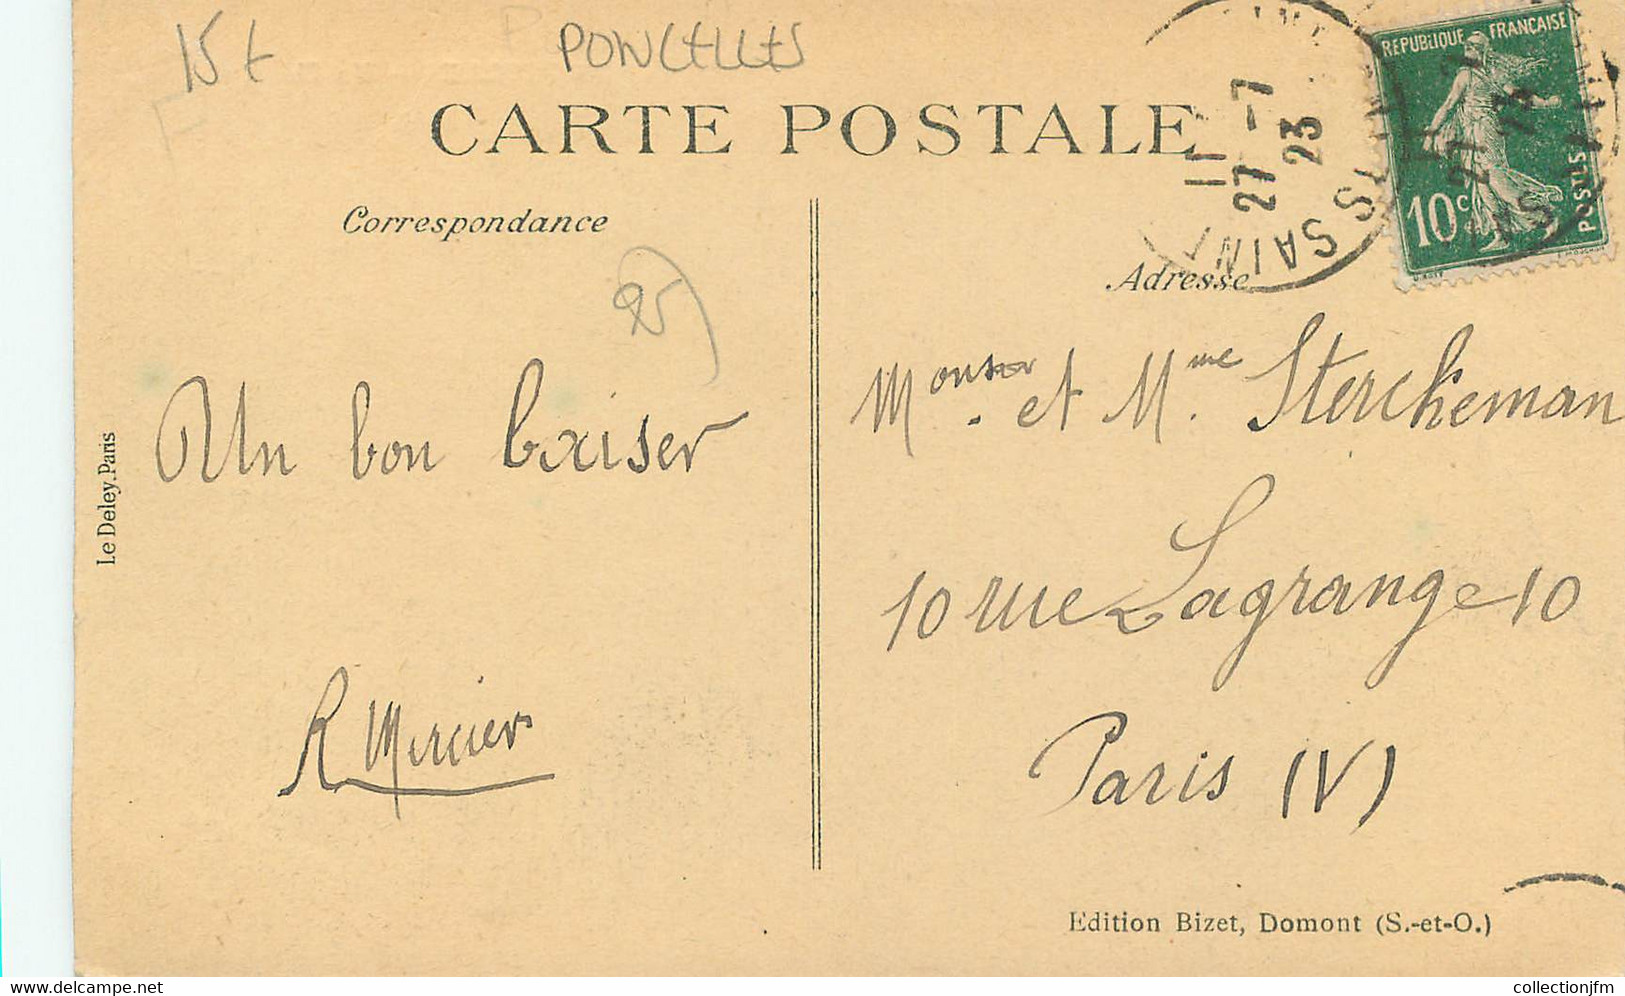 15 €
PONCELLES
CARTE POSTALE
Correspondance
Adresse
RÉPUBLIQUE FRANÇAISE
10c
POSTES
11
27-7
23
SAINT
95
Un bon baiser
R Mercier
Monsieur et Mme Sterckeman
10 rue Lagrange 10
Paris (V)
Le Deley. Paris
Edition Bizet, Domont (S.-et-O.)
www.delcampe.net
collectionjfm